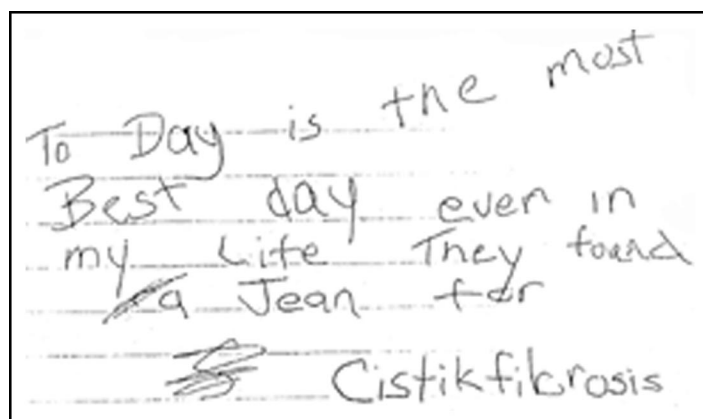 To Day is the most
Best day ever in
my Life They found
a Jean for
Cistikfibrosis